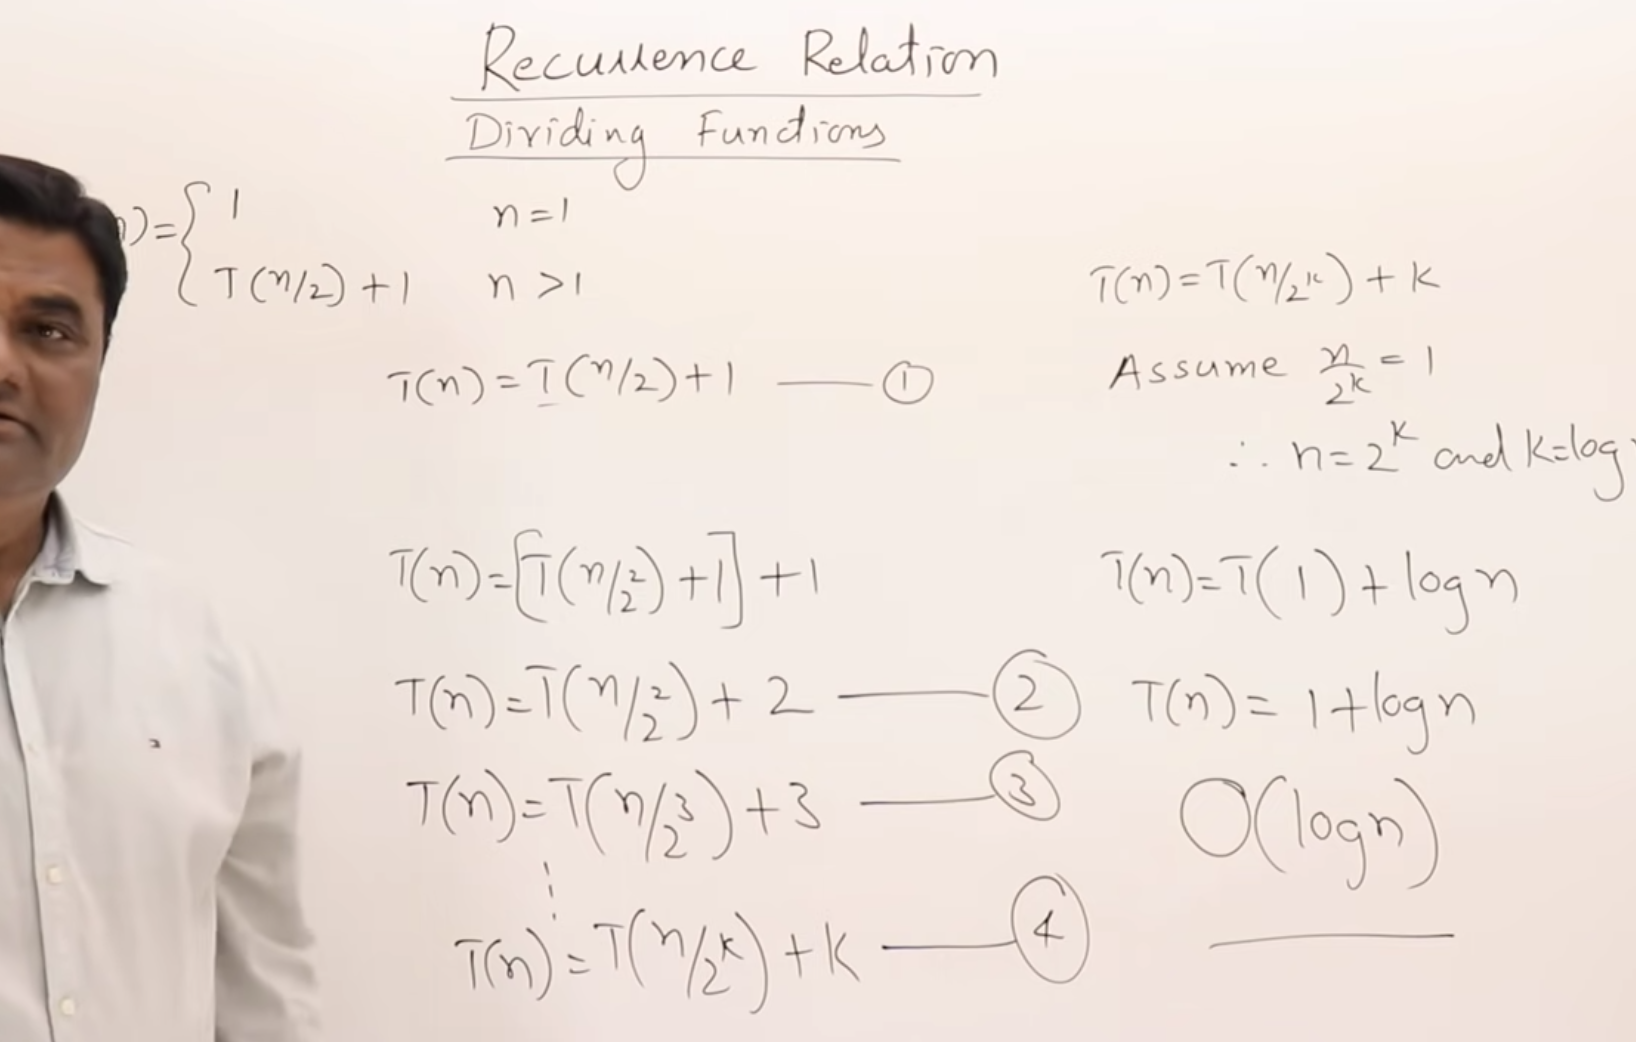 Recurrence Relation
Dividing Functions
n)= { 1 n=1
T(n/2)+1 n>1
T(n)=T(n/2)+1 —— ①
T(n)=[T(n/2²)+1]+1
T(n)=T(n/2²)+2 —— ②
T(n)=T(n/2³)+3 —— ③
⋮
T(n)=T(n/2ᵏ)+k —— ④
T(n)=T(n/2ᵏ)+k
Assume n/2ᵏ = 1
∴ n=2ᵏ and k=log
T(n)=T(1)+logn
T(n)=1+logn
O(logn)